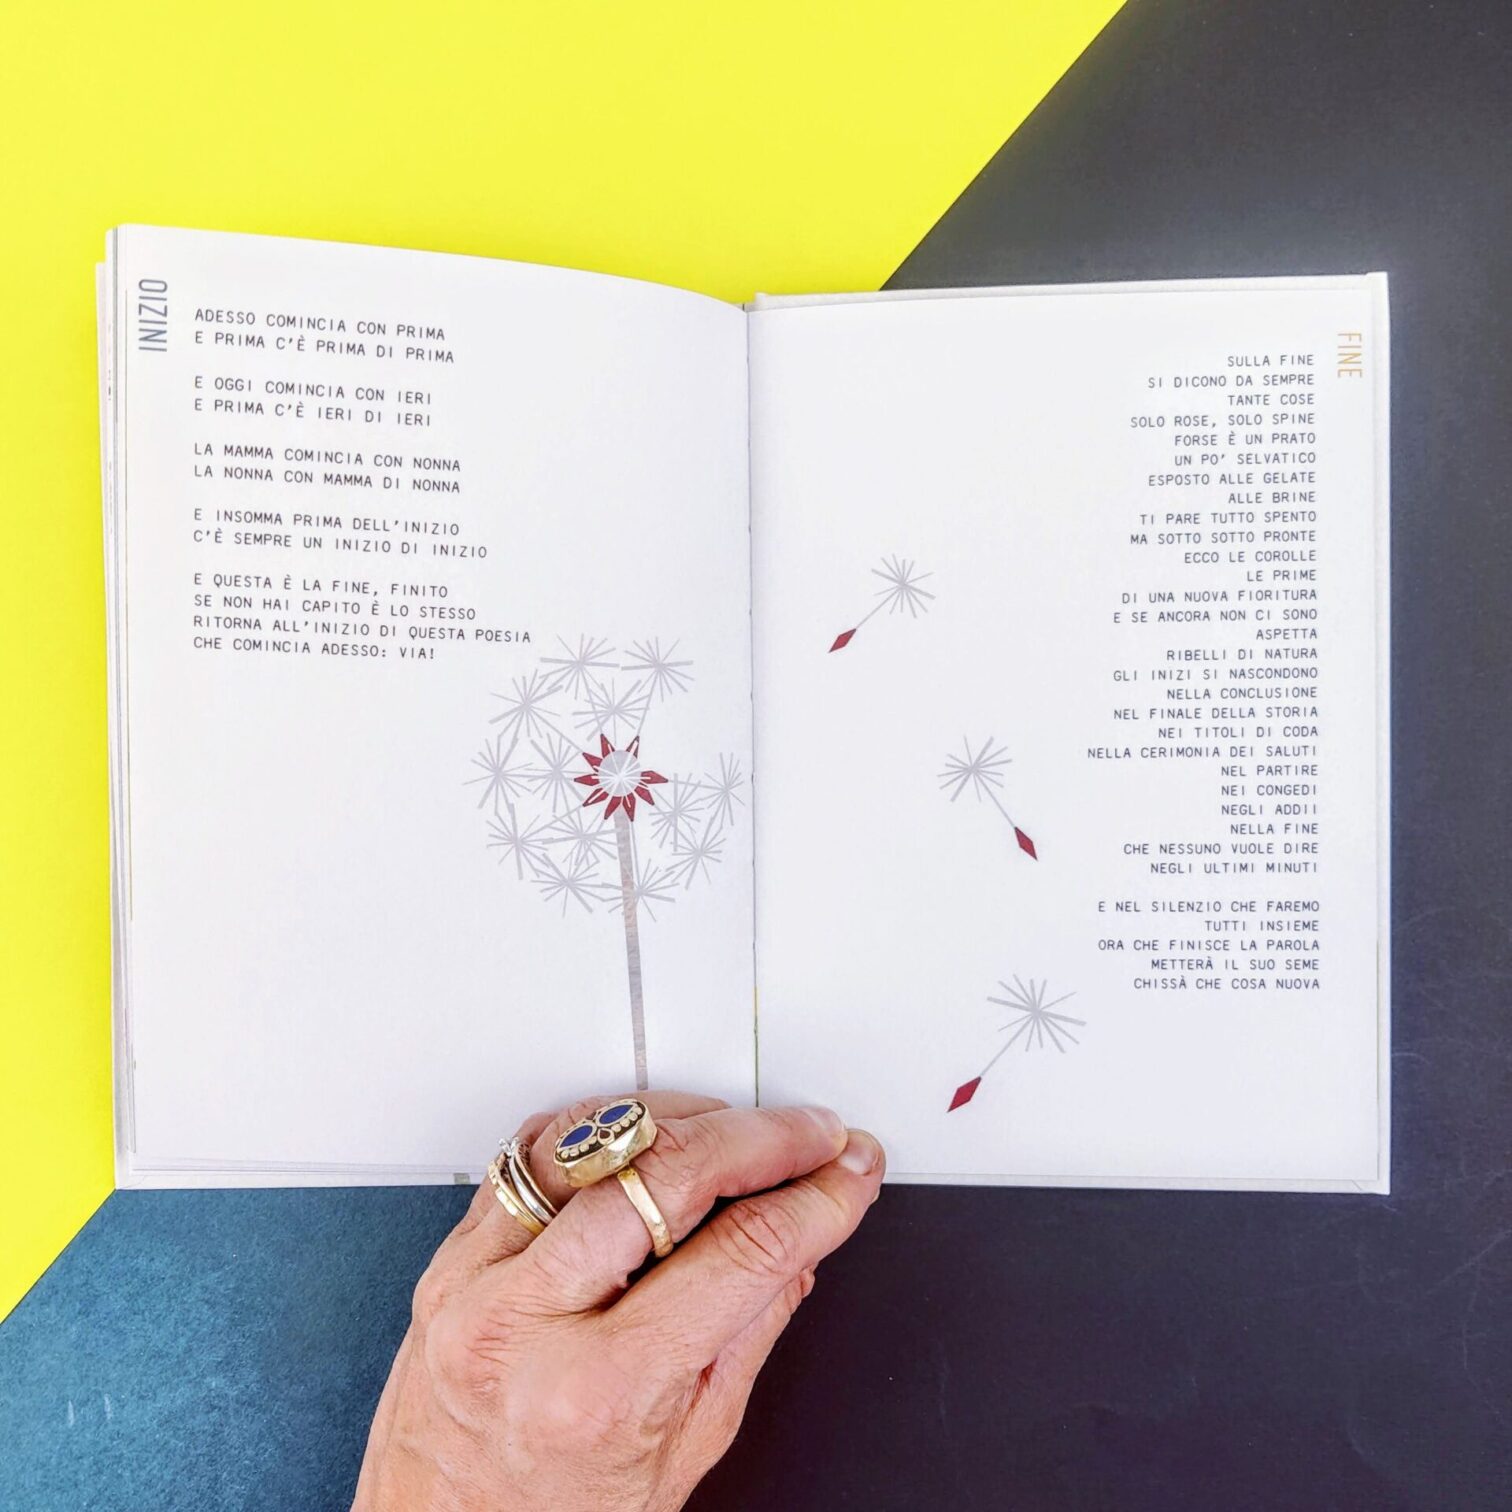 INIZIO
ADESSO COMINCIA CON PRIMA
E PRIMA C'È PRIMA DI PRIMA
E OGGI COMINCIA CON IERI
E PRIMA C'È IERI DI IERI
LA MAMMA COMINCIA CON NONNA
LA NONNA CON MAMMA DI NONNA
E INSOMMA PRIMA DELL'INIZIO
C'È SEMPRE UN INIZIO DI INIZIO
E QUESTA È LA FINE, FINITO
SE NON HAI CAPITO È LO STESSO
RITORNA ALL'INIZIO DI QUESTA POESIA
CHE COMINCIA ADESSO: VIA!
FINE
SULLA FINE
SI DICONO DA SEMPRE
TANTE COSE
SOLO ROSE, SOLO SPINE
FORSE È UN PRATO
UN PO' SELVATICO
ESPOSTO ALLE GELATE
ALLE BRINE
TI PARE TUTTO SPENTO
MA SOTTO SOTTO PRONTE
ECCO LE COROLLE
LE PRIME
DI UNA NUOVA FIORITURA
E SE ANCORA NON CI SONO
ASPETTA
RIBELLI DI NATURA
GLI INIZI SI NASCONDONO
NELLA CONCLUSIONE
NEL FINALE DELLA STORIA
NEI TITOLI DI CODA
NELLA CERIMONIA DEI SALUTI
NEL PARTIRE
NEI CONGEDI
NEGLI ADDII
NELLA FINE
CHE NESSUNO VUOLE DIRE
NEGLI ULTIMI MINUTI
E NEL SILENZIO CHE FAREMO
TUTTI INSIEME
ORA CHE FINISCE LA PAROLA
METTERÀ IL SUO SEME
CHISSÀ CHE COSA NUOVA